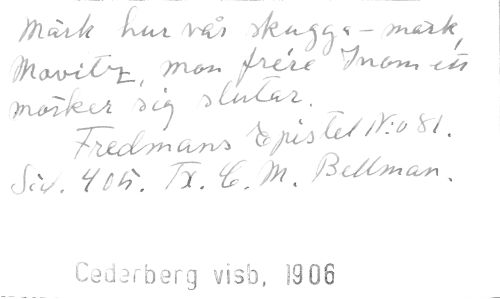 Märk hur vås skugga – märk,
Movitz, mon frére Inom ett
mörker sig slutar.
Fredmans Epistel N:o 81.
Sid. 405. Tx. C. M. Bellman.
Cederberg visb, 1906